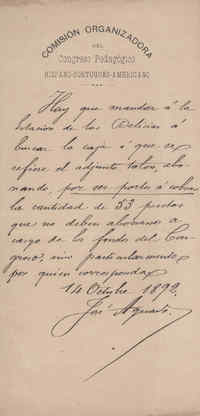 COMISIÓN ORGANIZADORA
DEL
Congreso Pedagógico
HISPANO-PORTUGUÉS-AMERICANO
Hay que mandar á la
Estación de las Delicias á
buscar la caja á que se
refiere el adjunto talón, abo-
nando, por ser portes á cobrar
la cantidad de 53 pesetas
que no deben abonarse a
cargo de los fondos del Con-
greso, sino particularmente
por quien corresponda
14 Octubre 1892.
José